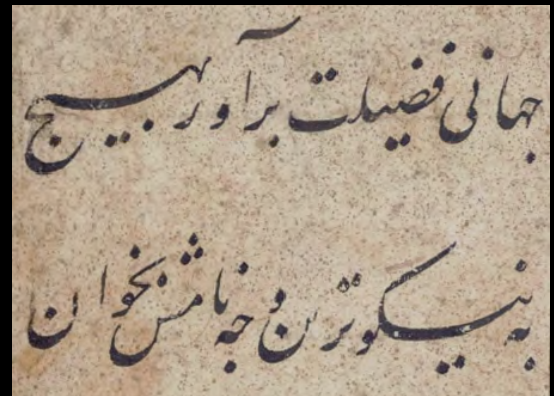 جهانی فضیلت برآور بهیج
به نیکوترین وجه نامش بخوان